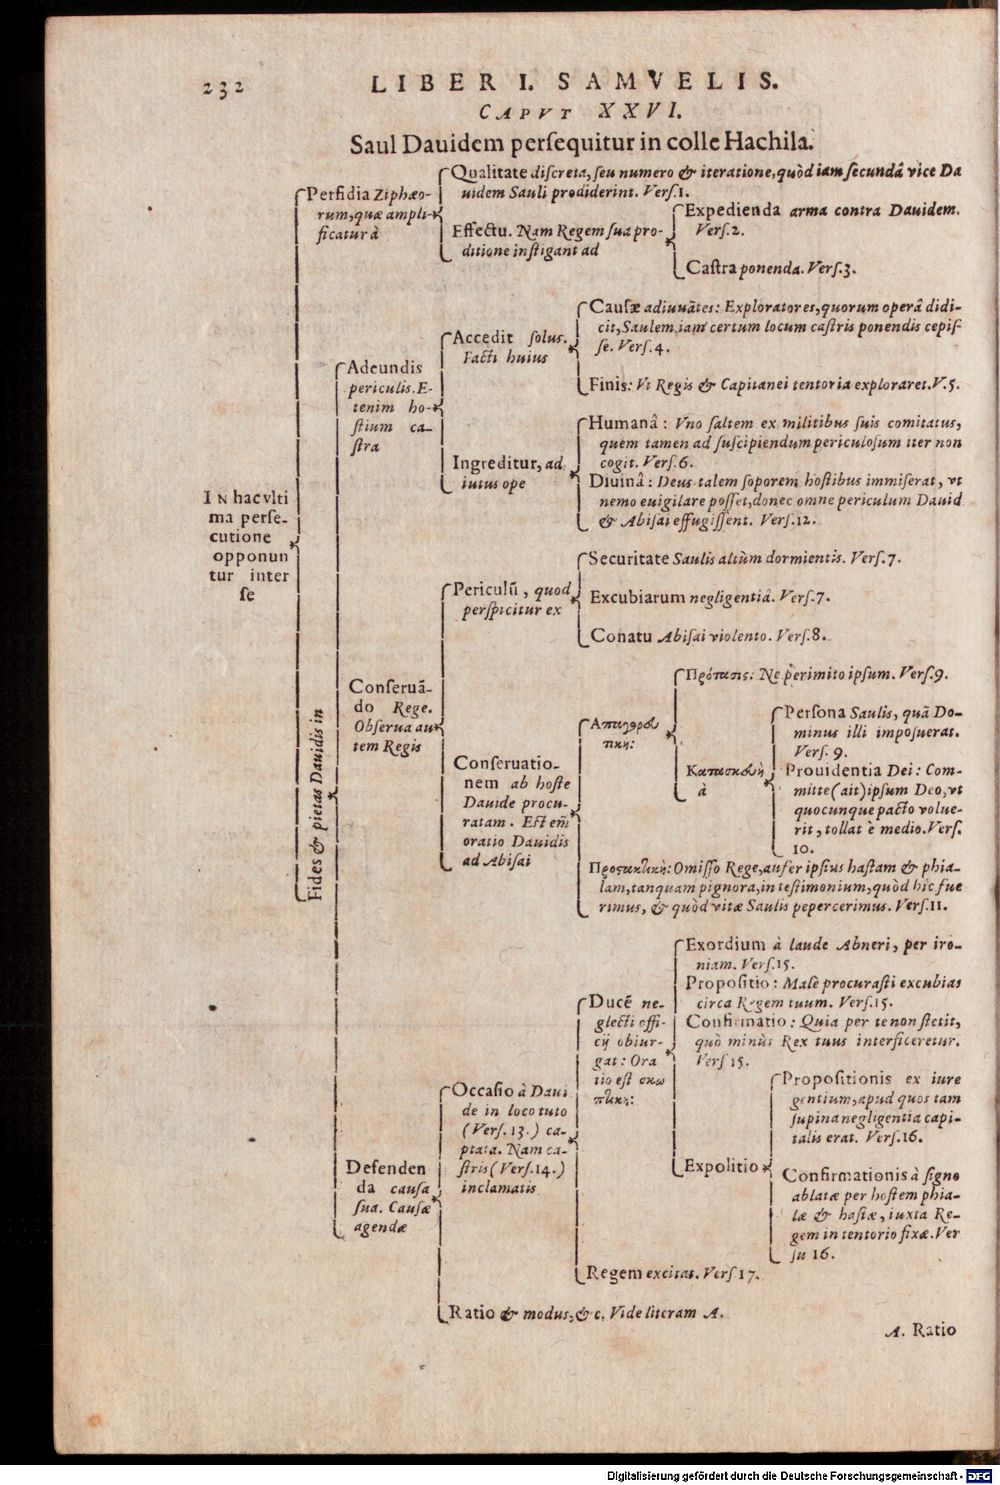 232
LIBER I. SAMVELIS.
CAPVT XXVI.
Saul Dauidem persequitur in colle Hachila.
IN hac vlti
ma perse-
cutione
opponun
tur inter
se
Perfidia Ziphæo-
rum, quæ ampli-
ficatur à
Qualitate discreta, seu numero & iteratione, quòd iam secundâ vice Da
uidem Sauli prodiderint. Vers.1.
Effectu. Nam Regem sua pro-
ditione instigant ad
Expedienda arma contra Dauidem.
Vers.2.
Castra ponenda. Vers.3.
Fides & pietas Dauidis in
Adeundis
periculis. E-
tenim ho-
stium ca-
stra
Accedit solus.
Facti huius
Causæ adiuuātes: Exploratores, quorum operâ didi-
cit, Saulem iam certum locum castris ponendis cepis-
se. Vers.4.
Finis: Vt Regis & Capitanei tentoria exploraret. V.5.
Ingreditur, ad
iutus ope
Humanâ: Vno saltem ex militibus suis comitatus,
quem tamen ad suscipiendum periculosum iter non
cogit. Vers.6.
Diuinâ: Deus talem soporem hostibus immiserat, vt
nemo euigilare posset, donec omne periculum Dauid
& Abisai effugissent. Vers.12.
Conseruā-
do Rege.
Obserua au
tem Regis
Periculū, quod
perspicitur ex
Securitate Saulis altùm dormientis. Vers.7.
Excubiarum negligentiâ. Vers.7.
Conatu Abisai violento. Vers.8.
Conseruatio-
nem ab hoste
Dauide procu-
ratam. Est em̄
oratio Dauidis
ad Abisai
Απαγορευ
τικη:
Πρότασις: Ne perimito ipsum. Vers.9.
Κατασκευὴ
à
Persona Saulis, quā Do-
minus illi imposuerat.
Vers. 9.
Prouidentia Dei: Com-
mitte (ait) ipsum Deo, vt
quocunque pacto volue-
rit, tollat è medio. Vers.
10.
Προςακτικὴ: Omisso Rege, aufer ipsius hastam & phia-
lam, tanquam pignora, in testimonium, quòd hîc fue
rimus, & quòd vitæ Saulis pepercerimus. Vers.11.
Defenden
da causa
sua. Causæ
agendæ
Occasio à Daui
de in loco tuto
(Vers.13.) ca-
ptata. Nam ca-
stris (Vers.14.)
inclamatis
Ducē ne-
glecti offi-
cij obiur-
gat: Ora
tio est σκω
πτικη:
Exordium à laude Abneri, per iro-
niam. Vers.15.
Propositio: Malè procurasti excubias
circa Regem tuum. Vers.15.
Confirmatio: Quia per te non stetit,
quò minùs Rex tuus interficeretur.
Vers 15.
Expolitio
Propositionis ex iure
gentium, apud quos tam
supina negligentia capi-
talis erat. Vers.16.
Confirmationis à signo
ablatæ per hostem phia-
læ & hastæ, iuxta Re-
gem in tentorio fixæ. Ver
su 16.
Regem excitat. Vers.17.
Ratio & modus, &c. Vide literam A.
A. Ratio
Digitalisierung gefördert durch die Deutsche Forschungsgemeinschaft - DFG